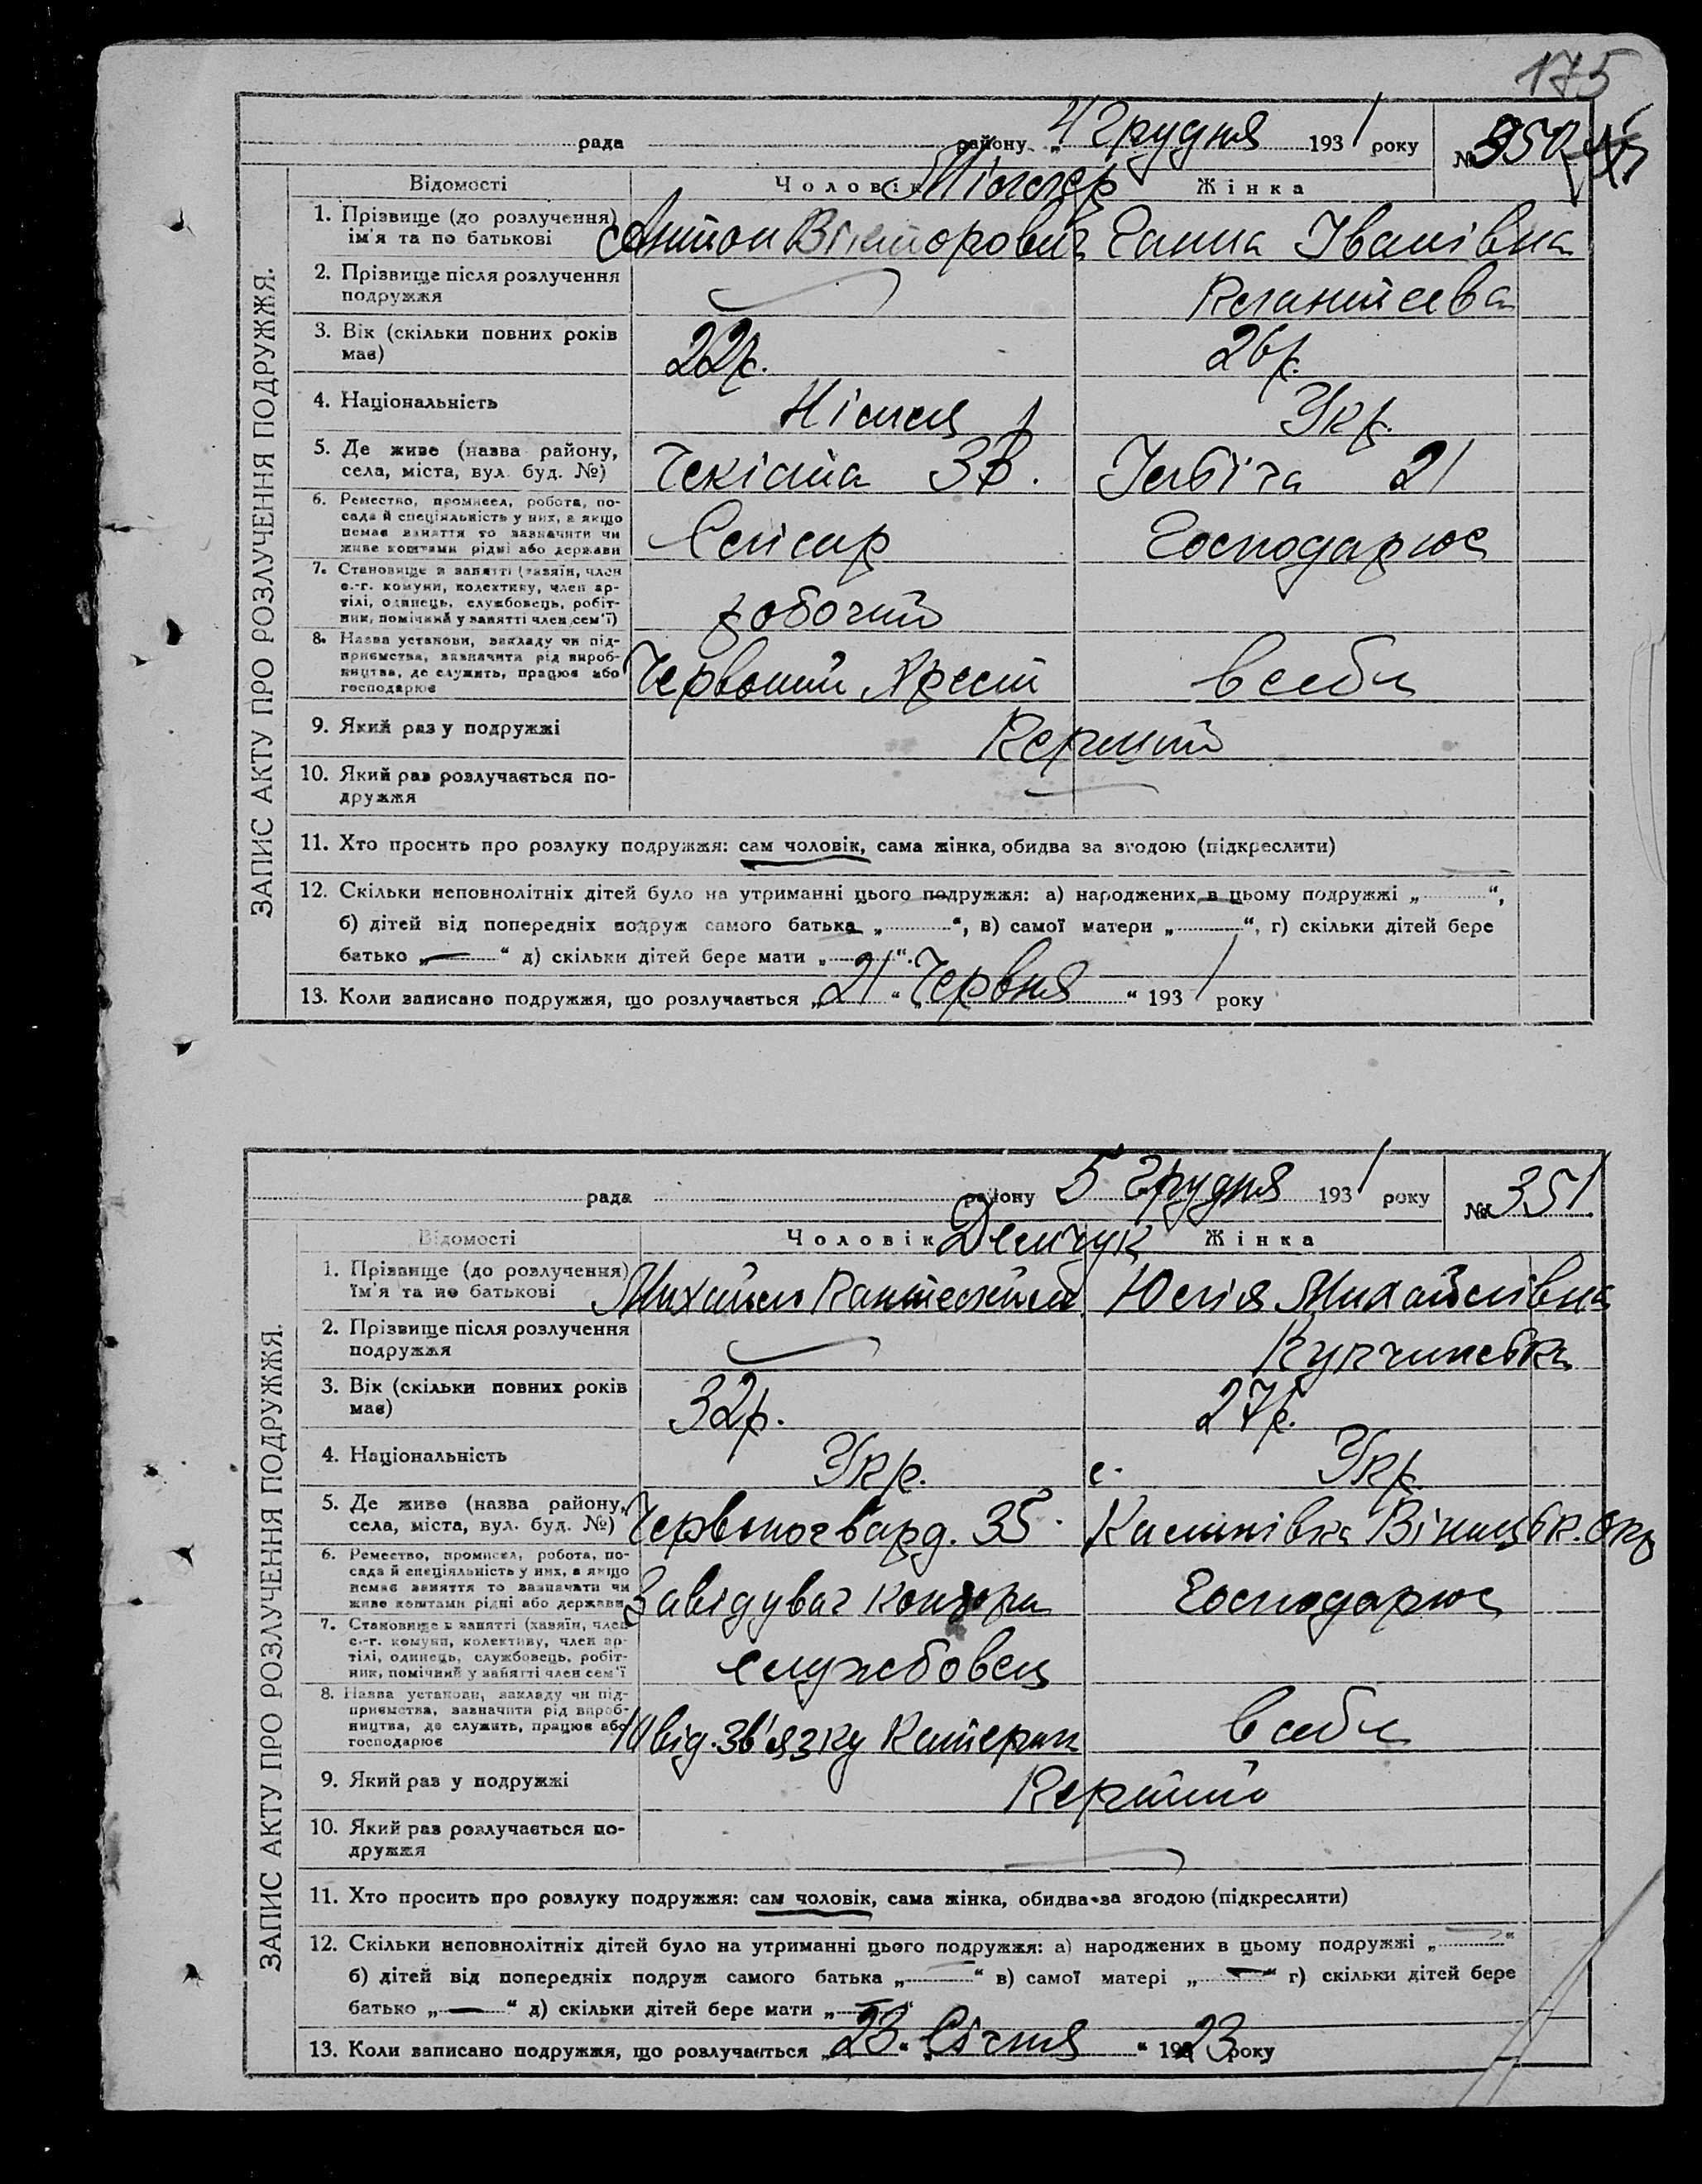 175
рада району „4 Грудня 1931 року № 350
Відомості Чоловік Міллер Жінка
ЗАПИС АКТУ ПРО РОЗЛУЧЕННЯ ПОДРУЖЖЯ.
1. Прізвище (до розлучення) ім'я та по батькові Антон Вікторович Ганна Іванівна
2. Прізвище після розлучення подружжя
3. Вік (скільки повних років має) 22р. 26р.
4. Національність Німець Укр.
5. Де живе (назва району, села, міста, вул. буд. №) Чекіста 21
6. Ремество, промисел, робота, по-
сада й спеціяльність у них, а якщо
немає заняття то зазначити чи
живе коштами рідні або держави Слісар Господарює
7. Становище в занятті (хазяїн, член
с.-г. комуни, колективу, член ар-
тілі, одинець, службовець, робіт-
ник, помічний у занятті член сем'ї) робочий
8. Назва установи, закладу чи під-
приємства, зазначити рід вироб-
ництва, де служить, працює або
господарює Червоний всебе
9. Який раз у подружжі Перший
10. Який раз розлучається по-
дружжя
11. Хто просить про розлуку подружжя: сам чоловік, сама жінка, обидва за згодою (підкреслити)
12. Скільки неповнолітніх дітей було на утриманні цього подружжя: а) народжених в цьому подружжі „ “,
б) дітей від попередніх подруж самого батька „ “, в) самої матери „ “, г) скільки дітей бере
батько „ “ д) скільки дітей бере мати „ “.
13. Коли записано подружжя, що розлучається „21“ „Червня“ 1931 року
рада району 5 Грудня 1931 року № 351
Відомості Чоловік Демчук Жінка
ЗАПИС АКТУ ПРО РОЗЛУЧЕННЯ ПОДРУЖЖЯ.
1. Прізвище (до розлучення) ім'я та по батькові Михайло Юлія Михайлівна
2. Прізвище після розлучення подружжя Купчинська
3. Вік (скільки повних років має) 32р. 27р.
4. Національність Укр. Укр.
5. Де живе (назва району, села, міста, вул. буд. №) Червоногвард. 35. с. Калинівка Вінницьк. окр
6. Ремество, промисел, робота, по-
сада й спеціяльність у них, а якщо
немає заняття то зазначати чи
живе коштами рідні або держави Завідувач контори Господарює
7. Становище в занятті (хазяїн, член
с.-г. комуни, колективу, член ар-
тілі, одинець, службовець, робіт-
ник, помічний у занятті член сем'ї службовець
8. Назва установи, закладу чи під-
приємства, зазначити рід вироб-
ництва, де служить, працює або
господарює від. зв'язку Катерин всебе
9. Який раз у подружжі Перший
10. Який раз розлучається по-
дружжя
11. Хто просить про розлуку подружжя: сам чоловік, сама жінка, обидва за згодою (підкреслити)
12. Скільки неповнолітніх дітей було на утриманні цього подружжя: а) народжених в цьому подружжі „ “
б) дітей від попередніх подруж самого батька „ “ в) самої матері „ “ г) скільки дітей бере
батько „ “ д) скільки дітей бере мати „ “
13. Коли записано подружжя, що розлучається „23“ „Січня“ 1923 року